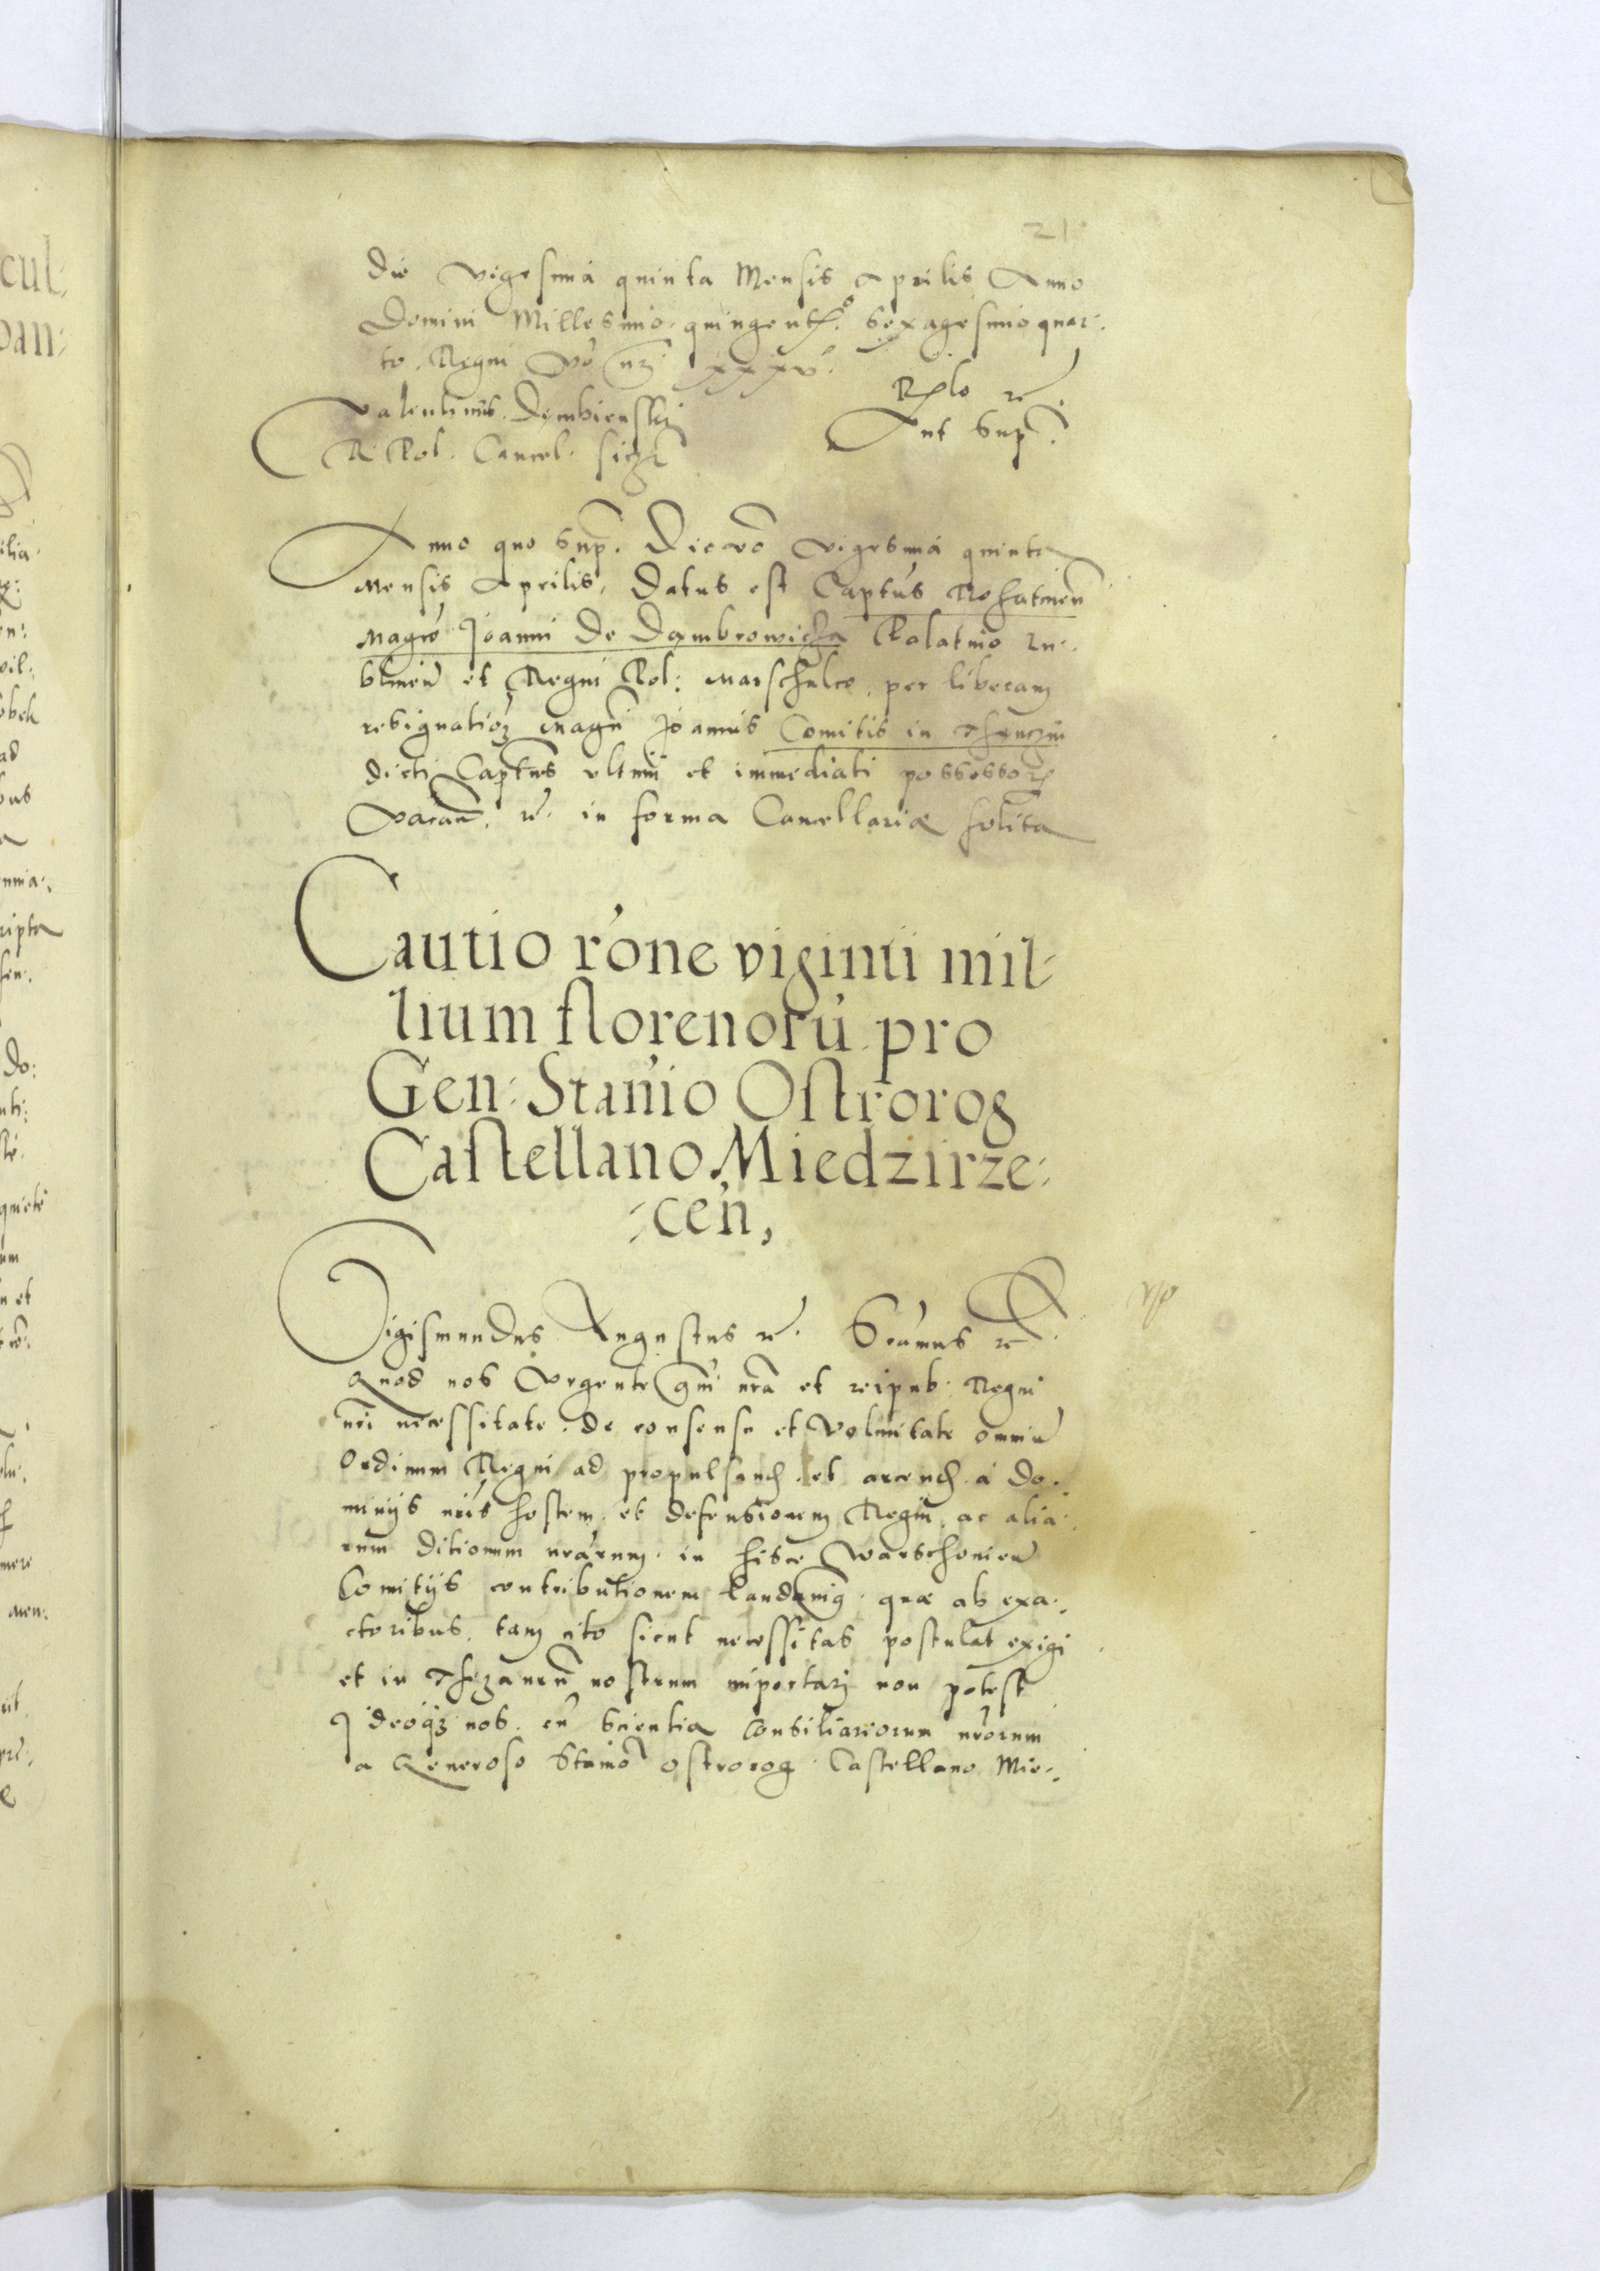 21
die vigesima quinta Mensis Aprilis Anno
Domini Millesimo quingent.º Sexagesimo quar-
to. Regni vo nri xxxv.
Valentinus Dembienskj
R. Pol. Cancel. sst
Rlo rc.
ut sup.
Anno quo sup. Die vo vigesima quinta
Mensis Aprilis, Datus est Captus Rohatinen
Magco Joanni de Dambrowicza Palatino Lu-
blinen et Regni Pol: Marschalco, per liberam
resignationem Magci Joannis Comitis in Thenczin
dicti Captus ultimi et immediati possessoris
Vacan. rc. in forma Cancellariæ solita
Cautio rone viginti mil-
lium florenorũ pro
Gen: Stanio Ostrorog
Castellano Miedzirze-
-cen,
Sigismundus Augustus rc. Scamus rc.
Quod nos Vrgente gni nra et reipub. Regni
nri necessitate. de consensu et Voluntate omniũ
Ordinum Regni ad propulsand. et arcend. á do-
minijs nris hostem, et defensionem Regni, ac alia-
rum ditionum nrarum. in hisce Warschovien
Comitijs contributionem laudavimq. quæ ab exa-
ctoribus, tam cito sicut necessitas postulat exigi
et in Thezaurũ nostrum importarj non potest
Jdeoqz nos. cũ scientia Consiliariorum nrorum
a Generoso Stanio Ostrorog Castellano Mie-